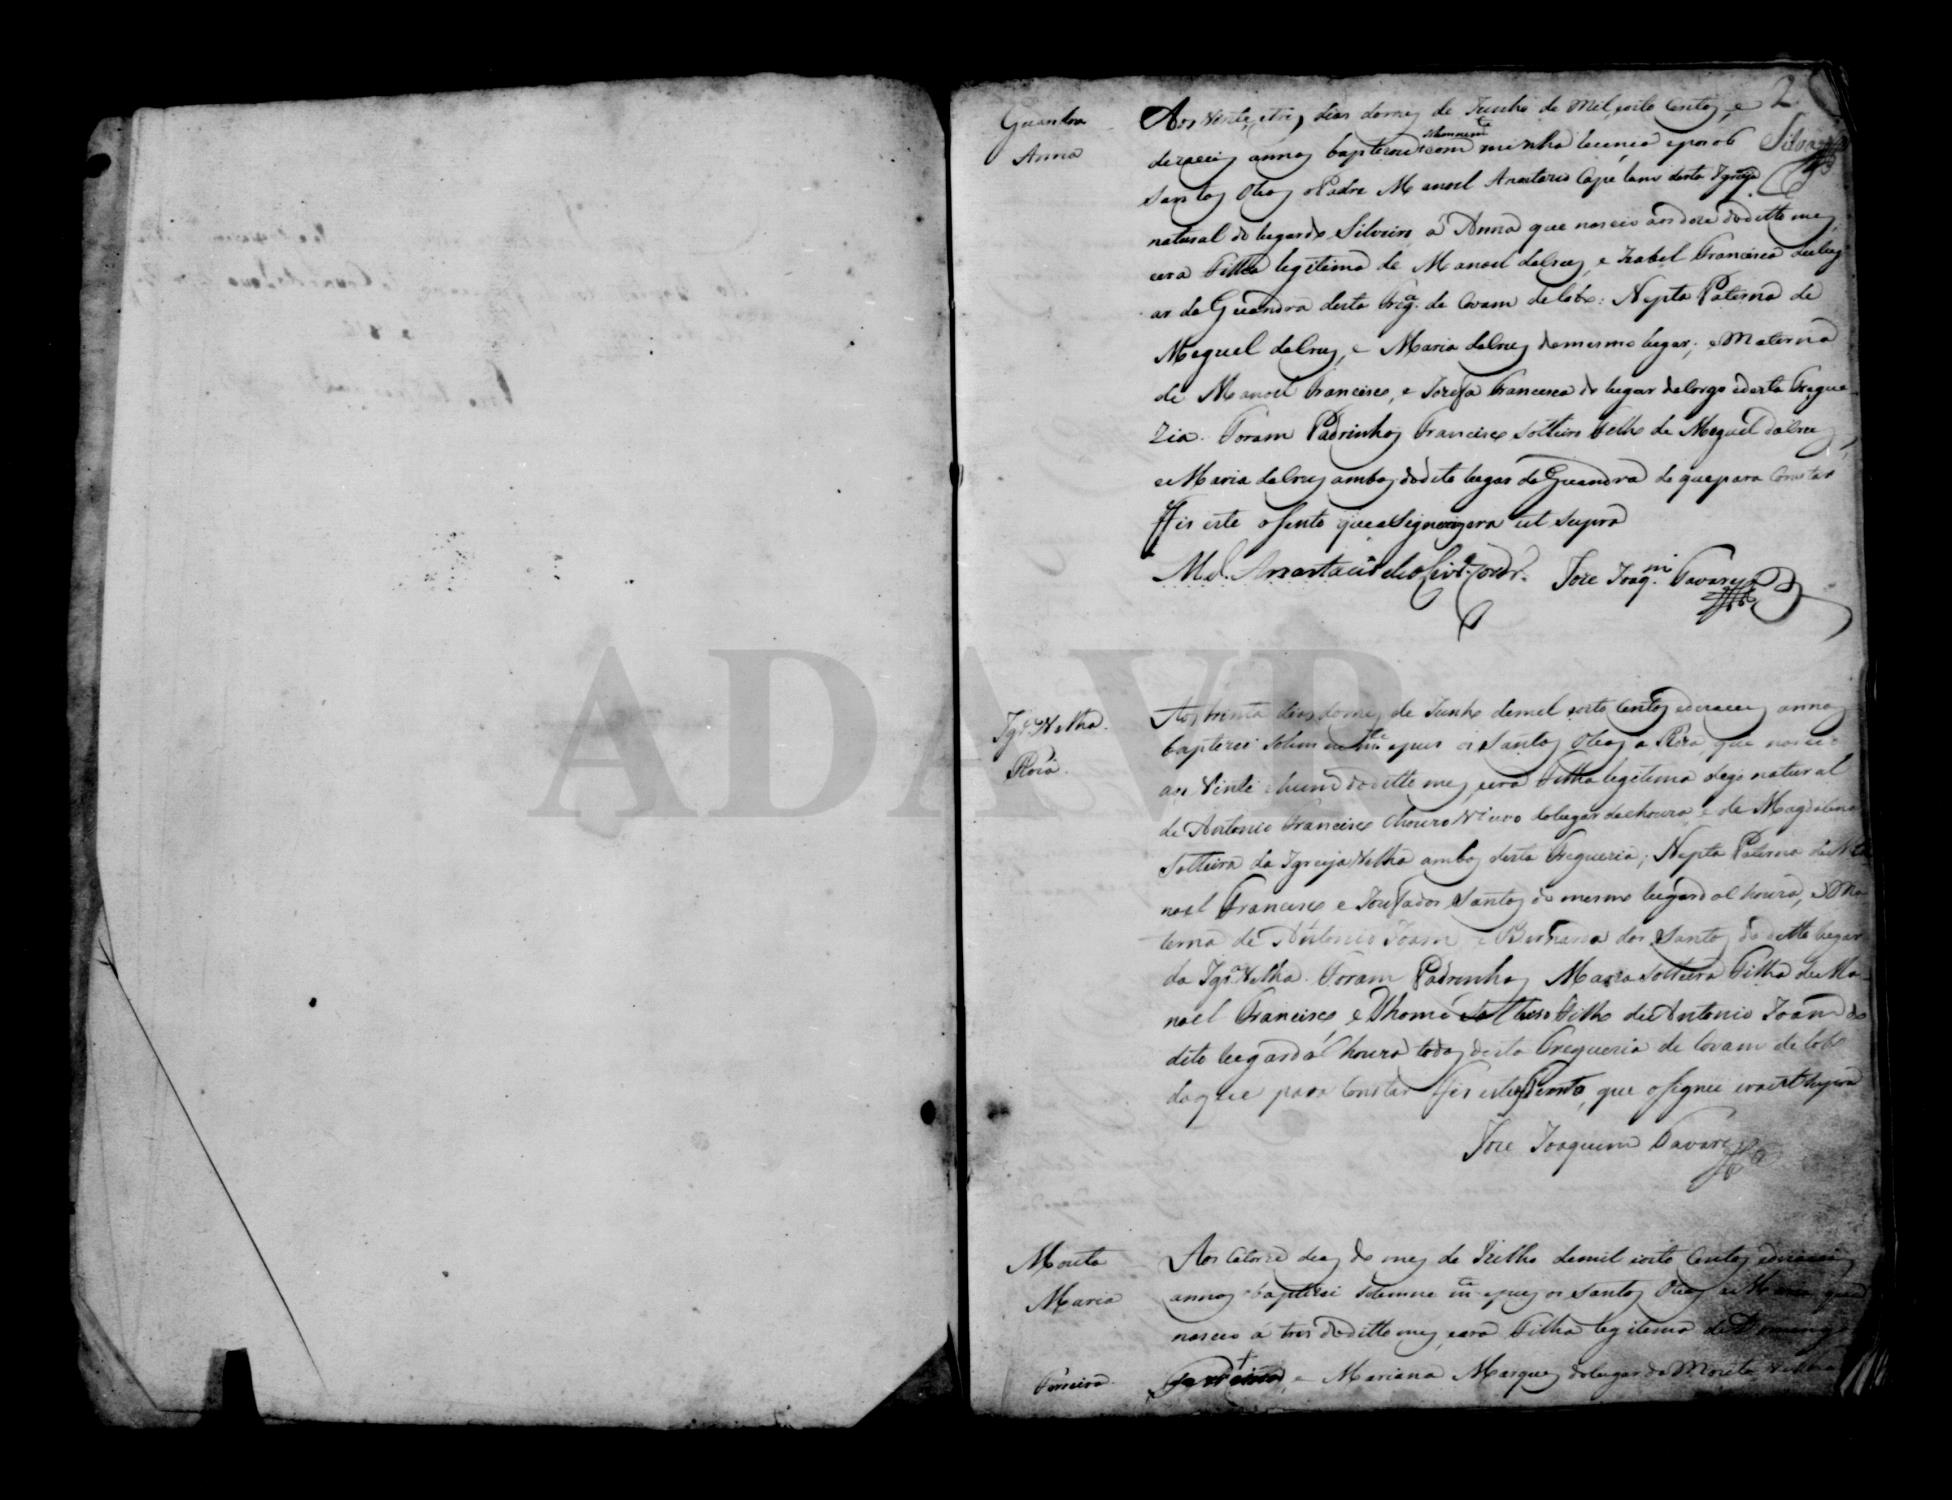 2
Silva
Guandra
Anna
Aos vinte, e tres dias do mez de Junho de Mil, oito Centos, e
dezaceis annos baptizou solemnem.te com minha licença e pos os
Santos Oleos o Padre Manoel Anastacio Capelam desta Igreja
natural do lugar do Silveiro á Anna que nasceo aos doze do ditto mez,
e era Filha legitima de Manoel da Cruz, e Izabel Francisca do lug
ar da Guandra desta Freg.a de Covam do Lobo: Nepta Paterna de
Meguel da Cruz, e Maria da Cruz do mesmo lugar; e Materna
de Manoel Francisco, e Jozefa Francisca do lugar da Corgo desta Fregue
zia. Foram Padrinhos Francisco Solteiro Filho de Meguel da Cruz,
e Maria da Cruz ambos do dito lugar da Guandra de que para Constar
Fis este Asento que asignei era ut supra
M.el Anastacio de Oliv.ra Jose Joaq.m Tavares
Igr.a Velha.
Roza.
Aos trinta dias do mez de Junho de mil oito Centos e dezaceis annos
baptizei Solemnem.te e pus os Santos Oleos a Roza, que nasceo
aos Vinte e hum do ditto mez, e era Filha legitima digo natural
de Antonio Francisco Chouro Viuvo do lugar da choura, e de Magdalena
Solteira da Igreja Velha ambos desta Freguezia; Nepta Paterna de Ma
noel Francisco e Jozefa dos Santos do mesmo lugar da Choura, e Ma
terna de Antonio Joam, e Bernarda dos Santos do ditto lugar
da Igr.a Velha. Foram Padrinhos Maria Solteira Filha de Ma-
noel Francisco, e Thomé Solteiro Filho de Antonio Joam do
dito lugar da Choura todos desta Freguezia de Covam do Lobo
do que para Constar Fis este Asento, que asignei era ut supra
Jose Joaquim Tavares
Mouta
Maria
Ferreira.
Aos Catorze dias do mez de Julho de mil oito Centos e dezaceis
annos baptizei Solemnem.te e pus os Santos Oleos a Maria que
nasceo á tres do ditto mez, e era Filha legitima de Domingos
Ferreira, e Mariana Marques do lugar da Mouta Velha
ADAVR